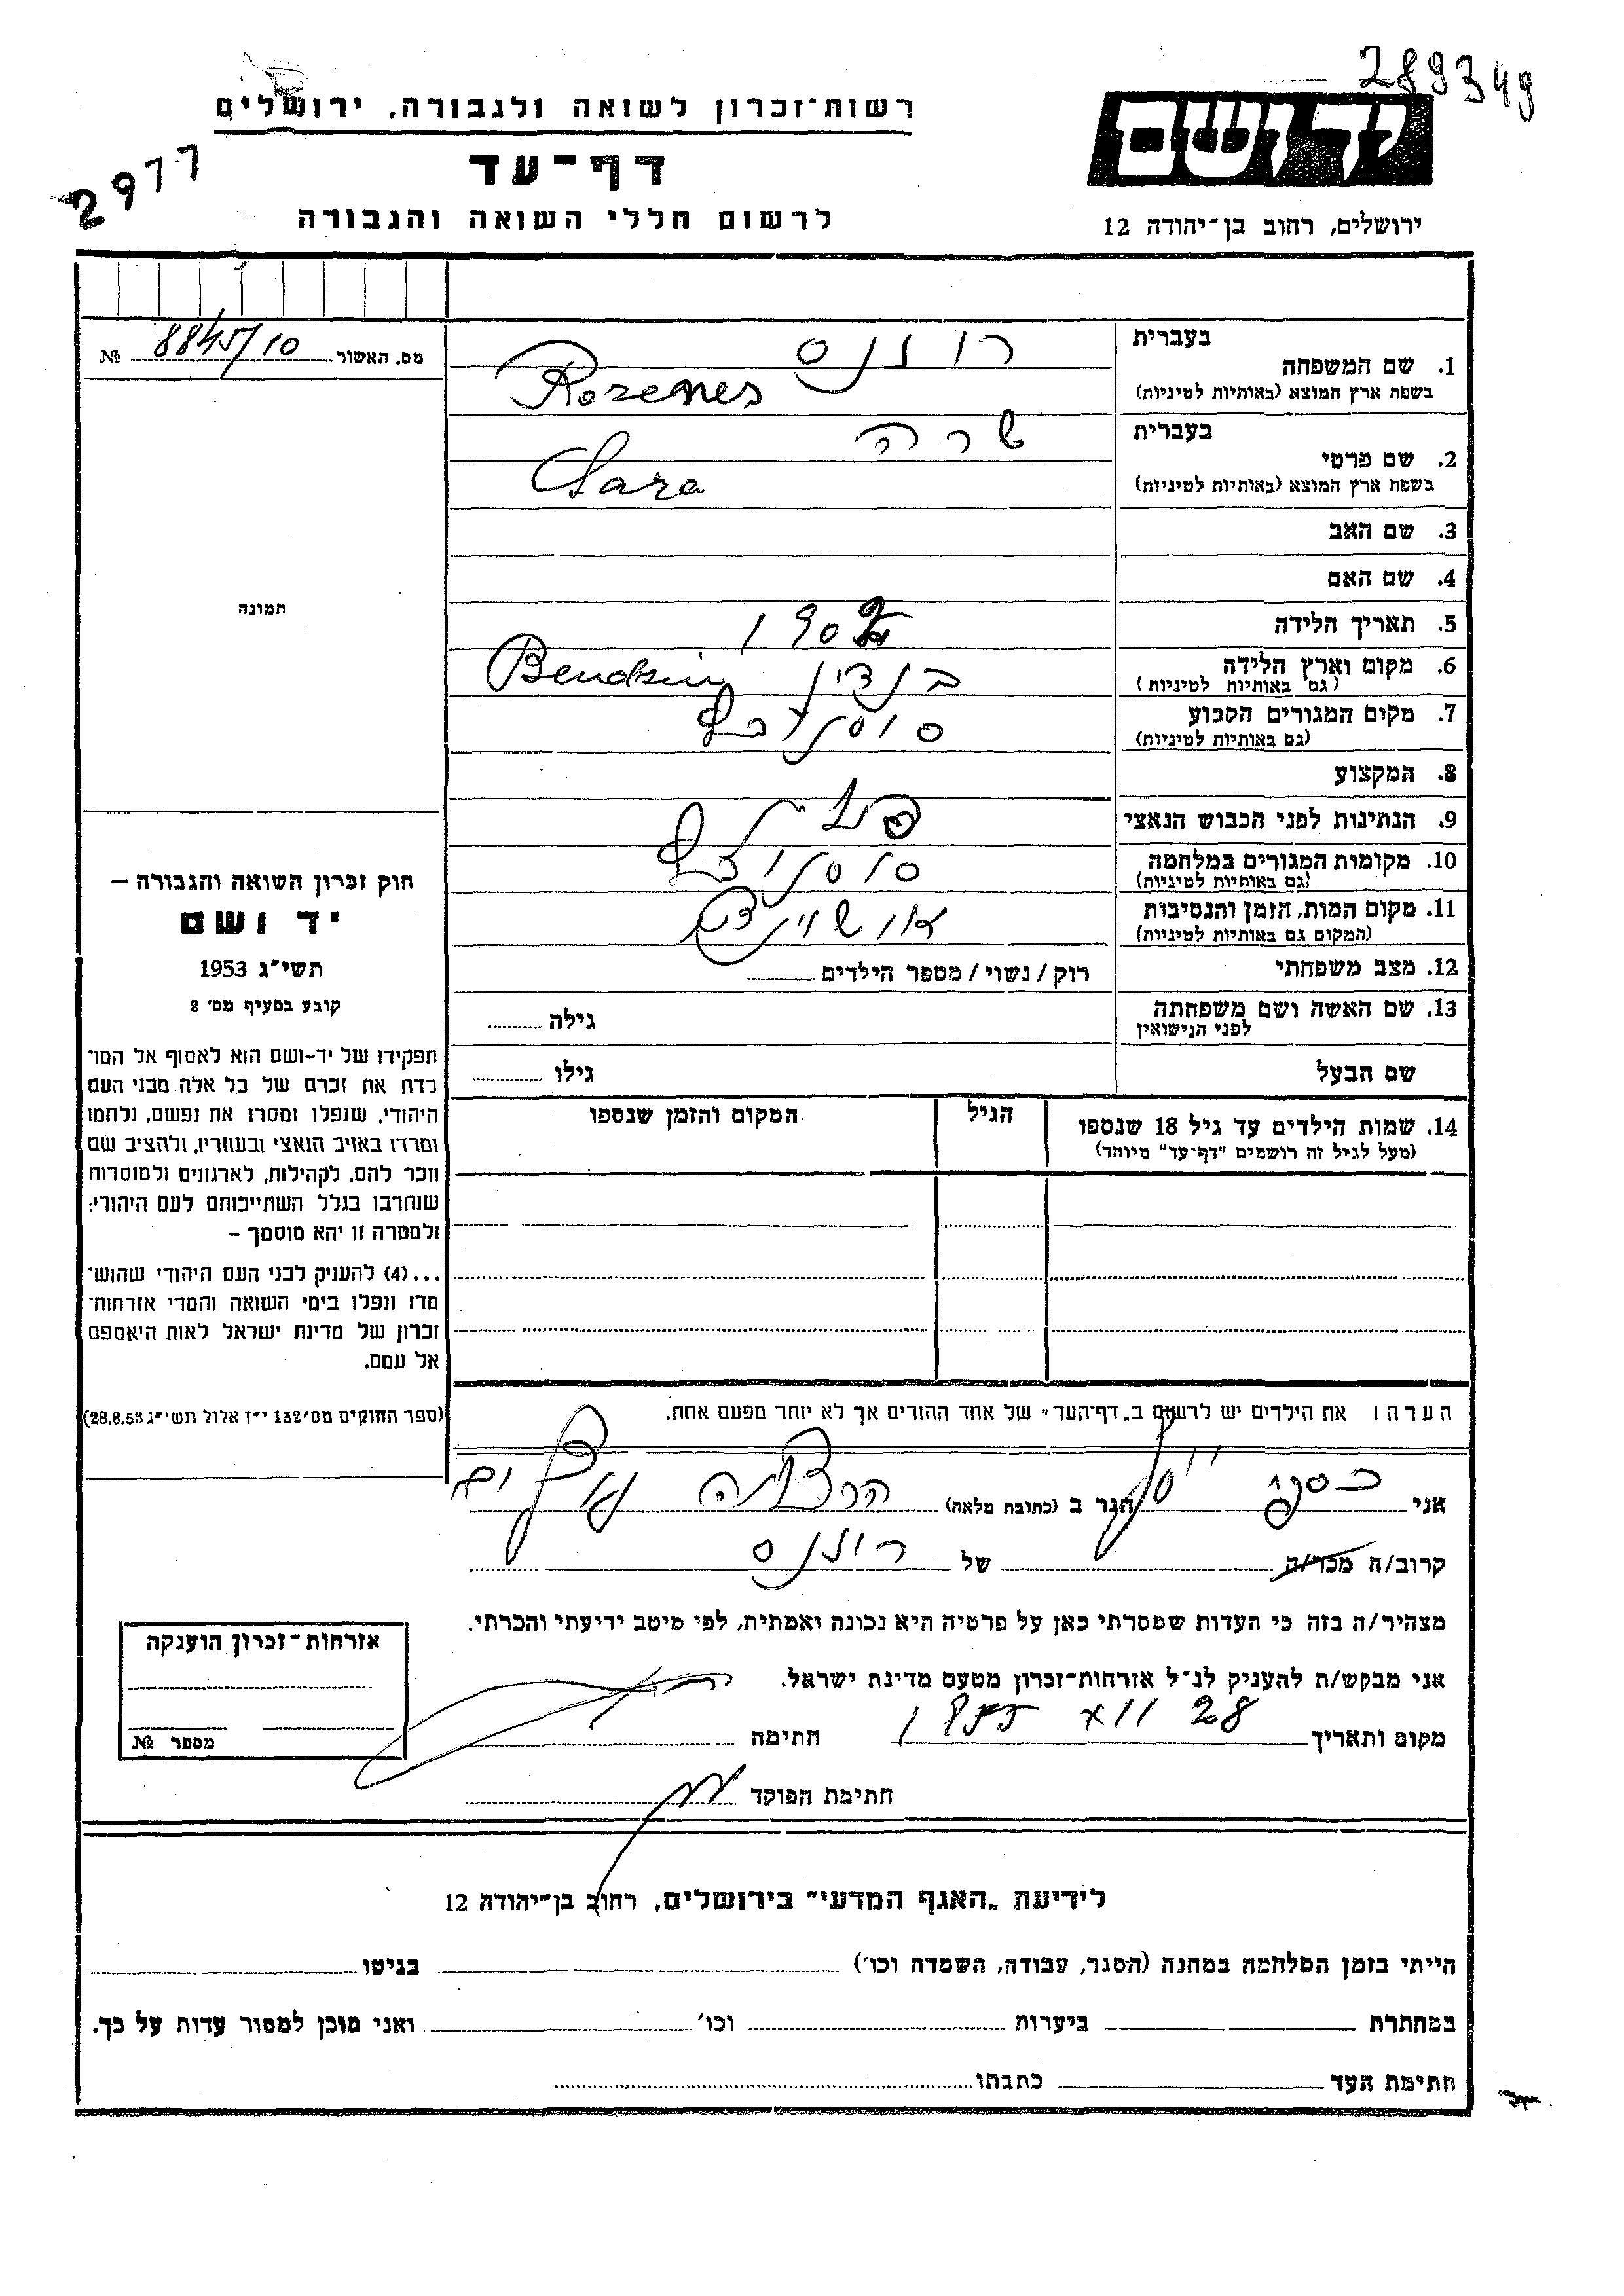 289349
רשות־זכרון לשואה ולגבורה, ירושלים
יד ושם
2977
דף־עד
לרשום חללי השואה והגבורה
ירושלים, רחוב בן־יהודה 12
מס. האשור 8845/10 №
בעברית
רוזנס
1. שם המשפחה
בשפת ארץ המוצא (באותיות לטיניות)
Rozenes
בעברית
שרה
2. שם פרטי
בשפת ארץ המוצא (באותיות לטיניות)
Sara
3. שם האב
4. שם האם
תמונה
5. תאריך הלידה
6. מקום וארץ הלידה בנדין Bendsin
(גם באותיות לטיניות)
7. מקום המגורים הקבוע
(גם באותיות לטיניות)
8. המקצוע
9. הנתינות לפני הכבוש הנאצי
10. מקומות המגורים במלחמה
(גם באותיות לטיניות)
11. מקום המות, הזמן והנסיבות
(המקום גם באותיות לטיניות)
12. מצב משפחתי רוק / נשוי / מספר הילדים
13. שם האשה ושם משפחתה גילה
לפני הנישואין
שם הבעל גילו
14. שמות הילדים עד גיל 18 שנספו הגיל המקום והזמן שנספו
(מעל לגיל זה רושמים "דף־עד" מיוחד)
חוק זכרון השואה והגבורה –
יד ושם
תשי"ג 1953
קובע בסעיף מס' 2
תפקידו של יד-ושם הוא לאסוף אל המו־
לדת את זכרם של כל אלה מבני העם
היהודי, שנפלו ומסרו את נפשם, נלחמו
ומרדו באויב הנאצי ובעוזריו, ולהציב שם
וזכר להם, לקהילות, לארגונים ולמוסדות
שנחרבו בגלל השתייכותם לעם היהודי;
ולמטרה זו יהא מוסמך –
...(4) להעניק לבני העם היהודי שהוש־
מדו ונפלו בימי השואה והמרי אזרחות־
זכרון של מדינת ישראל לאות היאספם
אל עמם.
(ספר החוקים מס' 132 י"ז אלול תשי"ג 28.8.53)
הערה: את הילדים יש לרשום ב„דף־העד" של אחד ההורים אך לא יותר מפעם אחת.
אני הגר ב (כתובת מלאה)
קרוב/ה מכר/ה של רוזנס
מצהיר/ה בזה כי העדות שמסרתי כאן על פרטיה היא נכונה ואמתית, לפי מיטב ידיעתי והכרתי.
אני מבקש/ת להעניק לנ"ל אזרחות־זכרון מטעם מדינת ישראל.
מקום ותאריך 28 חתימה
חתימת הפוקד
אזרחות־זכרון הוענקה
מספר №
לידיעת „האגף המדעי" בירושלים, רחוב בן־יהודה 12
הייתי בזמן המלחמה במחנה (הסגר, עבודה, השמדה וכו') בגיטו
במחתרת ביערות וכו' ואני מוכן למסור עדות על כך.
חתימת העד כתבתו